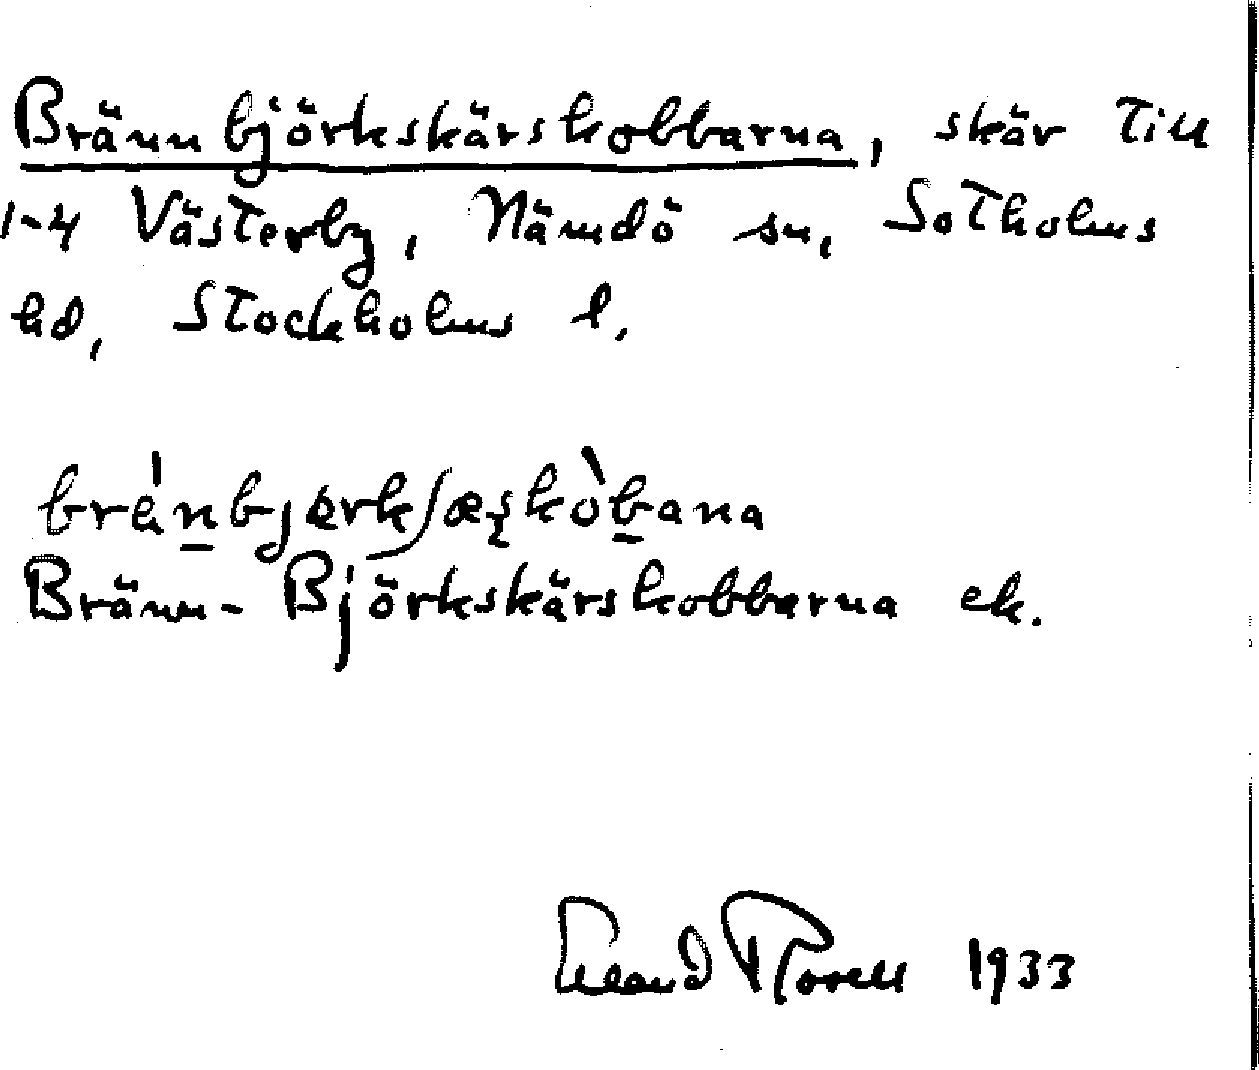 Brännbjörkskärskobbarna, skär till
1-4 Västerby, Nämdö sn, Sotholms
hd, Stockholms l.
brȧ́n̲bjærkʃæşkòb̲ana
Bränn-Björkskärskobbarna ek.
1933